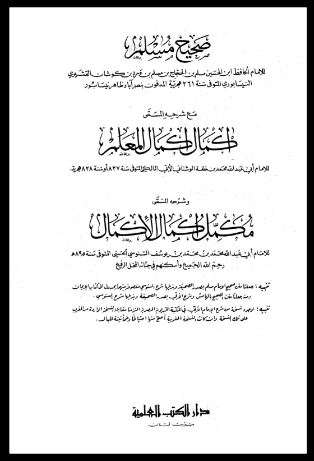 صحيح مسلم
للإمام الحافظ أبي الحسين مسلم بن الحجاج بن مسلم بن ورد بن كوشاد القشيري
النيسابوري المتوفى سنة ٢٦١ هجرية المدفون بنصر آباد ظاهر نيسابور
مع شرحه المسمى
إكمال إكمال المعلم
للإمام أبي عبد الله محمد بن خلفة الوشتاني الأبي المالكي المتوفى سنة ٨٢٧ أو سنة ٨٢٨ هجرية
وشرحه المسمى
مكمل إكمال الإكمال
للإمام أبي عبد الله محمد بن محمد بن يوسف السنوسي الحسني المتوفى سنة ٨٩٥ هـ
رحم الله الجميع وأسكنهم في جنانه المحل الرفيع
تنبيه: جعلنا متن صحيح الإمام مسلم بصدر الصحيفة
دار الكتب العلمية
بيروت لبنان